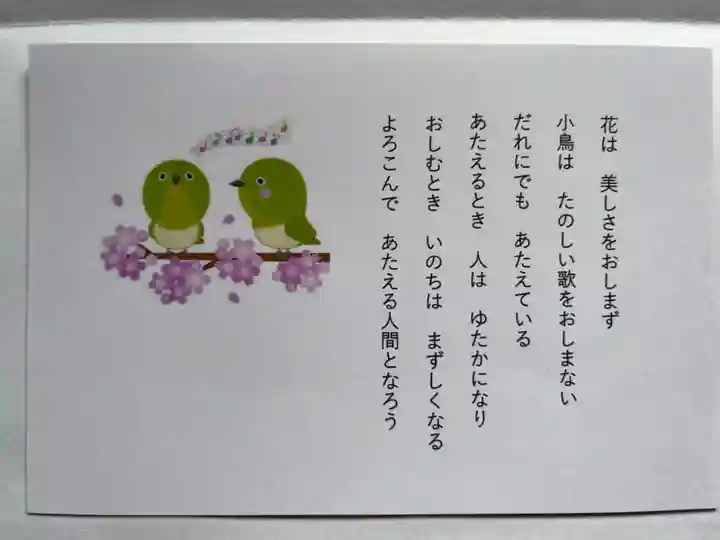 花は　美しさをおしまず
小鳥は　たのしい歌をおしまない
だれにでも　あたえている
あたえるとき　人は　ゆたかになり
おしむとき　いのちは　まずしくなる
よろこんで　あたえる人間となろう